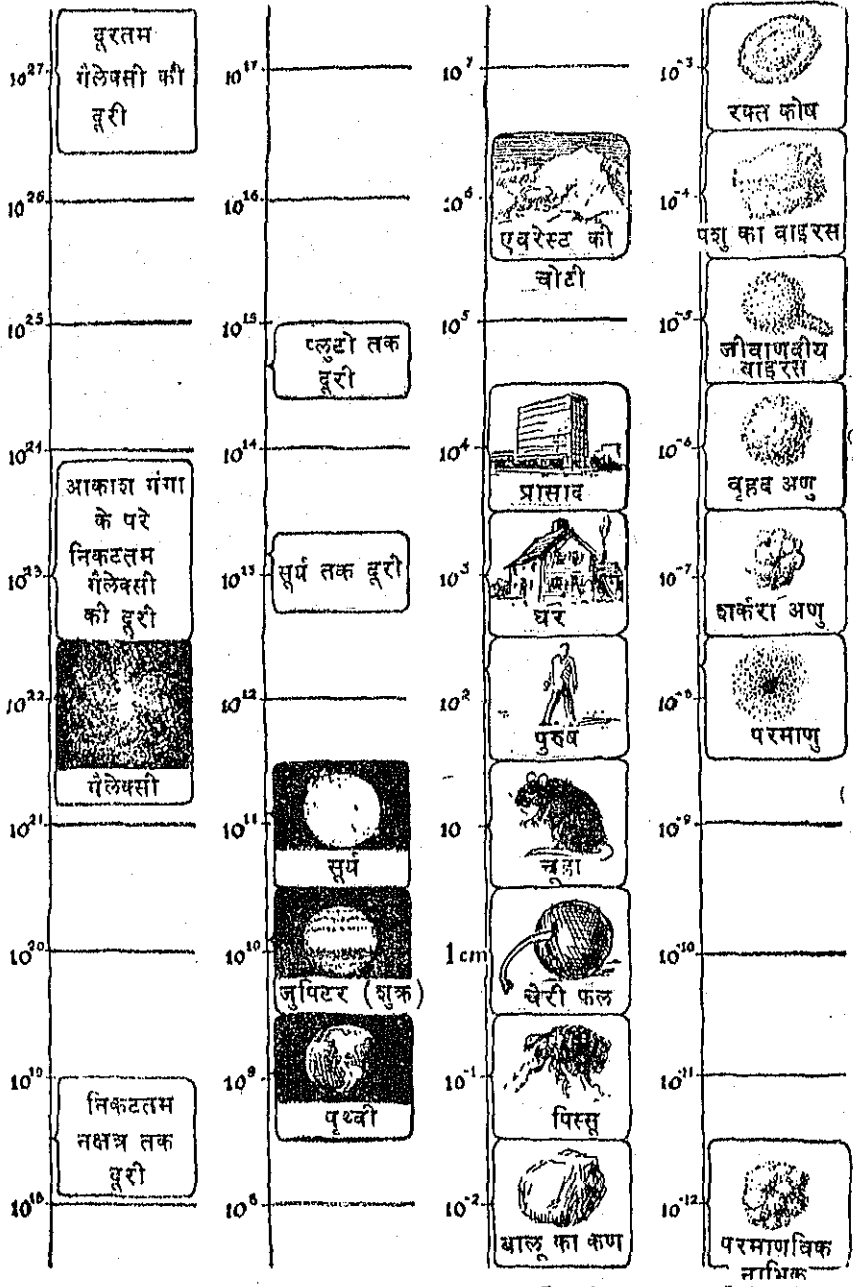 दूरतम
10²⁷
गैलेक्सी की
दूरी
10²⁶
10²⁵
10²⁴
आकाश गंगा
के परे
निकटतम
10²³
गैलेक्सी
की दूरी
10²²
गैलेक्सी
10²¹
10²⁰
10¹⁹
निकटतम
नक्षत्र तक
दूरी
10¹⁸
10¹⁷
10¹⁶
10¹⁵
प्लुटो तक
दूरी
10¹⁴
10¹³
सूर्य तक दूरी
10¹²
10¹¹
सूर्य
10¹⁰
जुपिटर (शुक्र)
10⁹
पृथ्वी
10⁸
10⁷
10⁶
एवरेस्ट की
चोटी
10⁵
10⁴
प्रासाद
10³
घर
10²
पुरुष
10
चूहा
1 cm
चेरी फल
10⁻¹
पिस्सू
10⁻²
बालू का कण
10⁻³
रक्त कोष
10⁻⁴
पशु का वाइरस
10⁻⁵
जीवाणवीय
वाइरस
10⁻⁶
वृहद अणु
10⁻⁷
शर्करा अणु
10⁻⁸
परमाणु
10⁻⁹
10⁻¹⁰
10⁻¹¹
10⁻¹²
परमाणविक
नाभिक